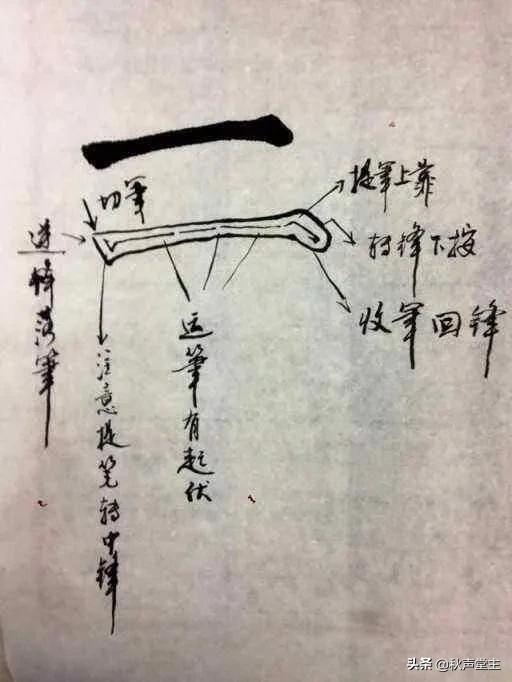 一
切笔
逆锋落笔
注意提笔转中锋
运笔有起伏
提笔上靠
转锋下按
收笔回锋
头条 @秋声堂主